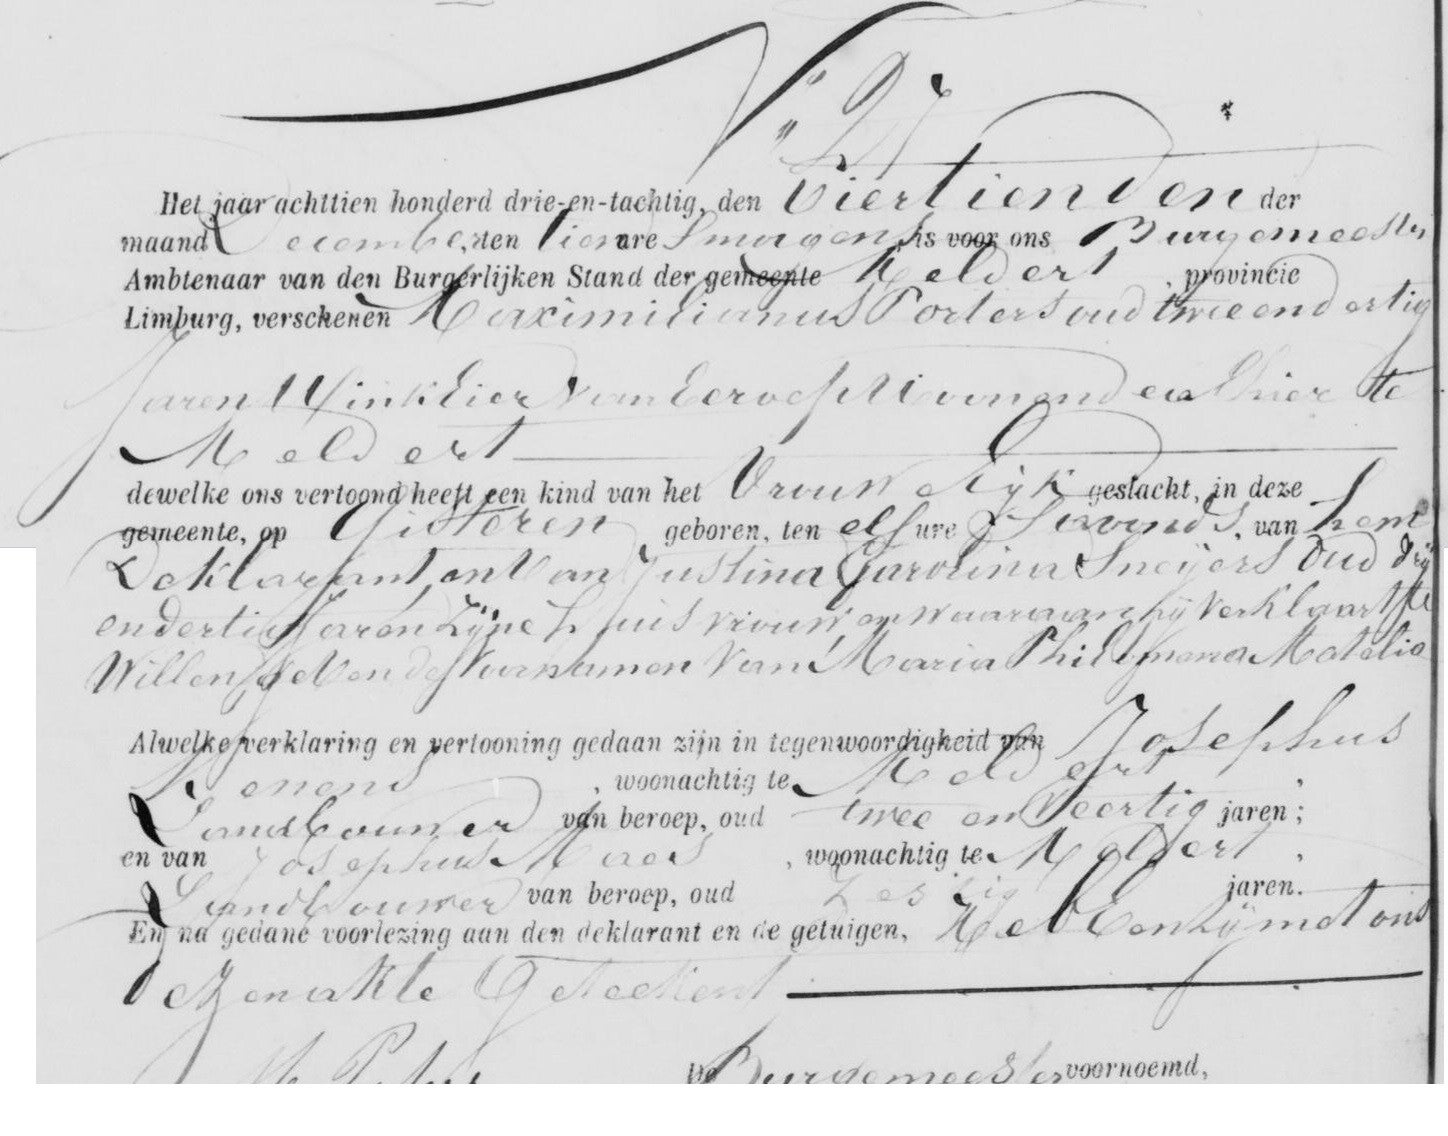 N° 27
Het jaar achttien honderd drie-en-tachtig, den Viertienden der
maand December, ten tien ure Smorgens, is voor ons Burgemeester
Ambtenaar van den Burgerlijken Stand der gemeente Meldert, provincie
Limburg, verschenen Maximilianus Porters oud tweeendertig
Jaren Winkelier van beroep Woonende alhier te
Meldert
dewelke ons vertoond heeft een kind van het Vrouwelijk geslacht, in deze
gemeente, op Gisteren geboren, ten elf ure Savonds, van hem
Deklarant en Van Justina Carolina Sneijers Oud drij
endertig Jaren Zijne huisvrouw, en waaraan hij verklaart te
Willen geven de Voornamen Van Maria Philomena Matelia
Alwelke verklaring en vertooning gedaan zijn in tegenwoordigheid van Josephus
, woonachtig te Meldert
Landbouwer van beroep, oud twee en Veertig jaren ;
en van Josephus Maes , woonachtig te Meldert ,
Landbouwer van beroep, oud Zestig jaren.
En na gedane voorlezing aan den deklarant en de getuigen, Hebben zij met ons
dezen akte Geteekent
De Burgemeester voornoemd,